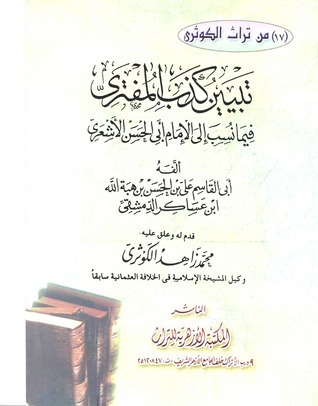 (١٧) من تراث الكوثرى
تبيين كذب المفترى
فيما نسب إلى الإمام أبي الحسن الأشعرى
ألفه
أبى القاسم على بن الحسن بن هبة الله
ابن عساكر الدمشقى
قدم له وعلق عليه
محمد زاهد الكوثرى
وكيل المشيخة الإسلامية فى الخلافة العثمانية سابقاً
الناشر
المكتبة الأزهرية للتراث
٩ درب الأتراك خلف الجامع الأزهر الشريف - ت: ٢٥١٢٠٨٤٧